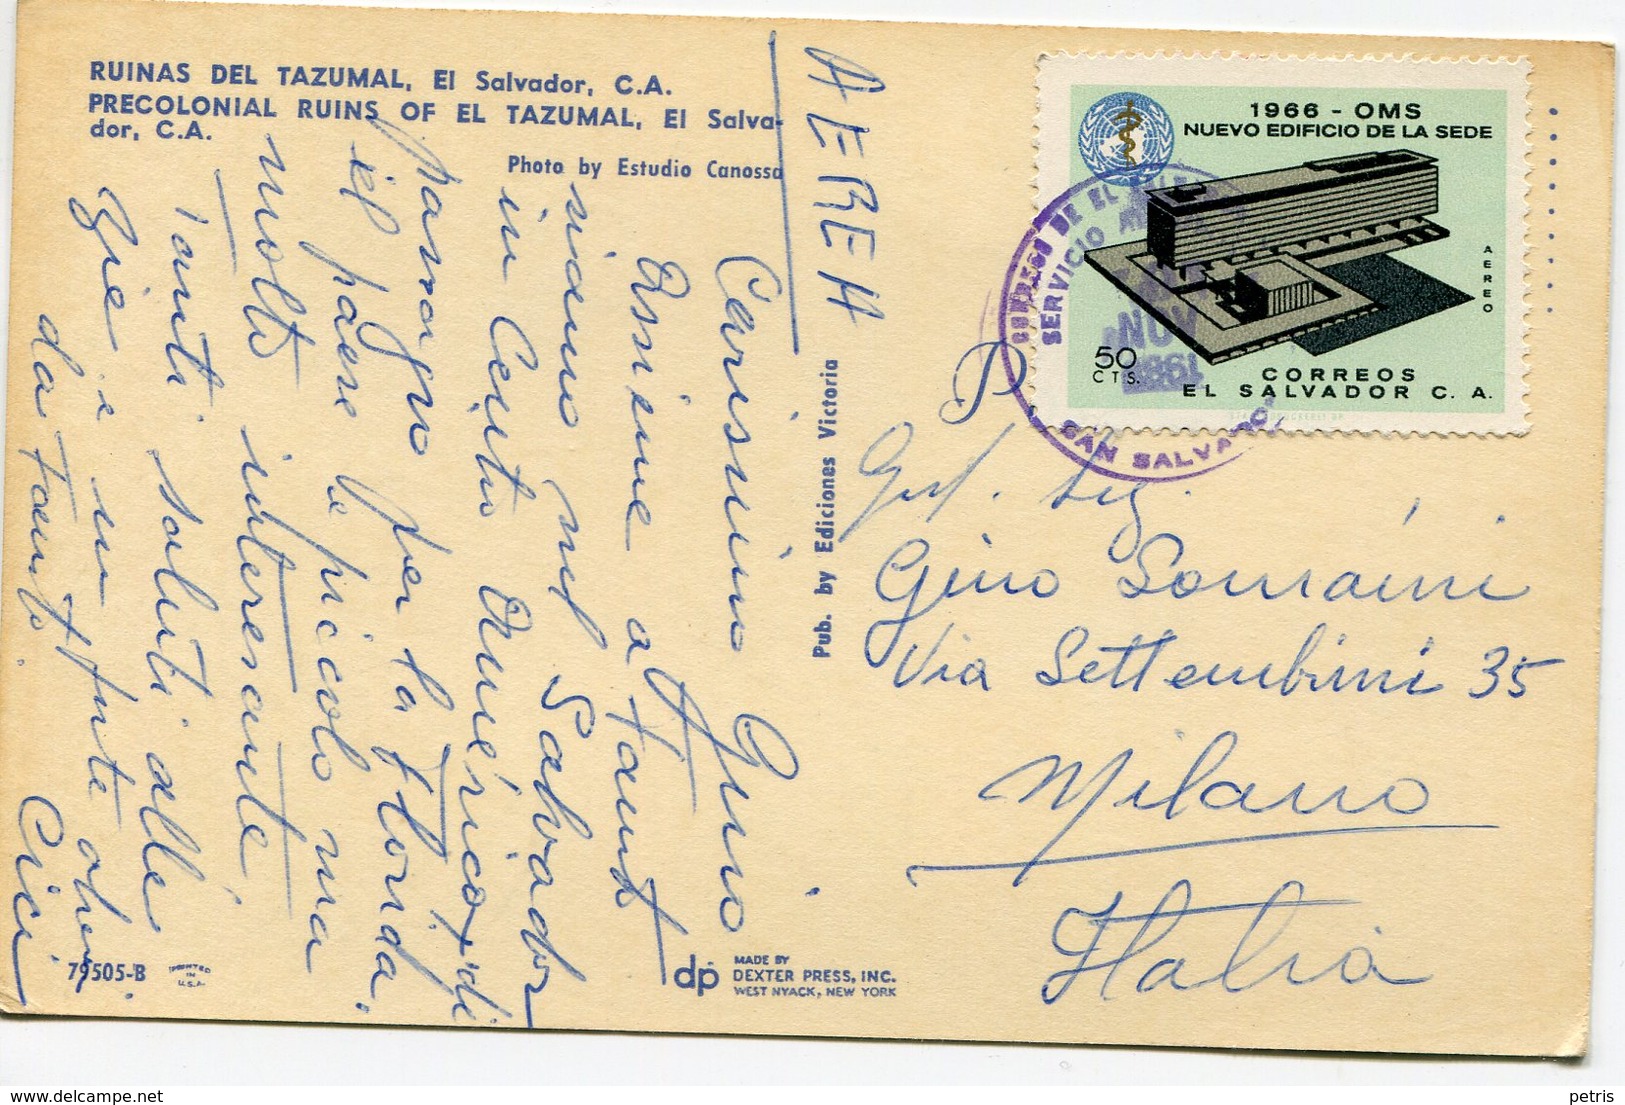 RUINAS DEL TAZUMAL, El Salvador, C.A.
PRECOLONIAL RUINS OF EL TAZUMAL, El Salva-
dor, C.A.
Photo by Estudio Canossa
Carissimo Gino
Assieme a Tanit
siamo nel Salvador
in Centro America di
passaggio per la Florida.
il paese è piccolo ma
molto interessante,
Tanti saluti alle
Gi e un forte
da Tanit.
Cici
79505-B
PRINTED
IN
U.S.A.
dp
MADE BY
DEXTER PRESS, INC.
WEST NYACK, NEW YORK
Pub. by Ediciones Victoria
AEREA
1966 - OMS
NUEVO EDIFICIO DE LA SEDE
AEREO
50
CTS.
CORREOS
EL SALVADOR C. A.
CORREOS DE EL
SERVICIO
NOV
SAN SALVADOR
P
Sig.
Gino Somaini
Via Settembrini 35
Milano
Italia
petris